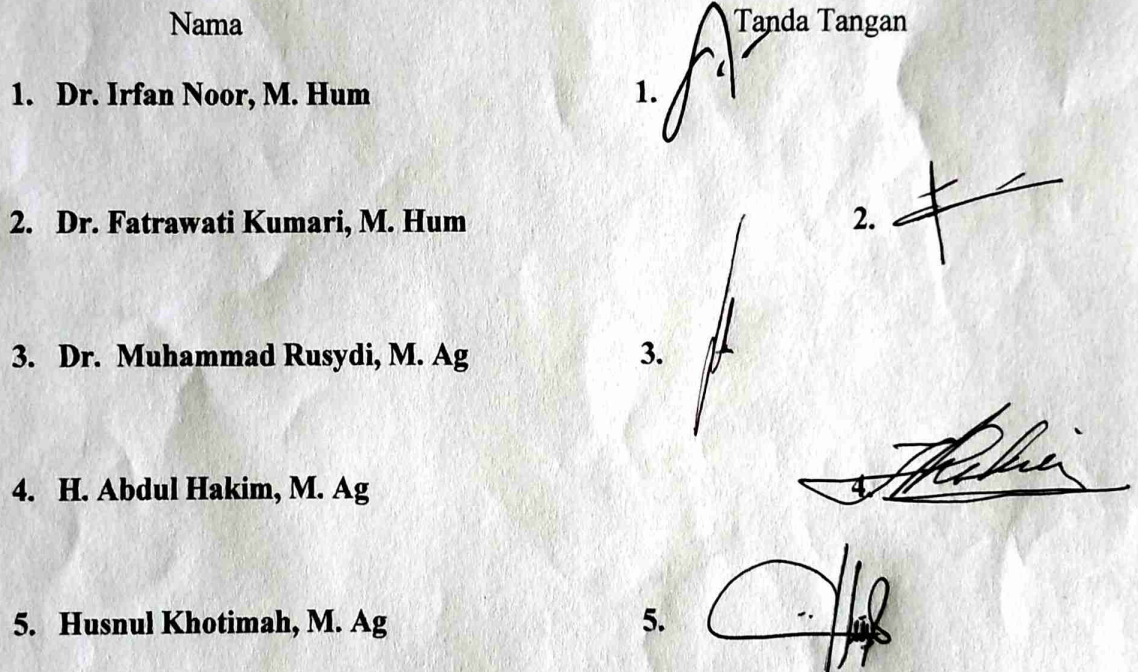 Nama Tanda Tangan
1. Dr. Irfan Noor, M. Hum 1.
2. Dr. Fatrawati Kumari, M. Hum 2.
3. Dr. Muhammad Rusydi, M. Ag 3.
4. H. Abdul Hakim, M. Ag 4.
5. Husnul Khotimah, M. Ag 5.